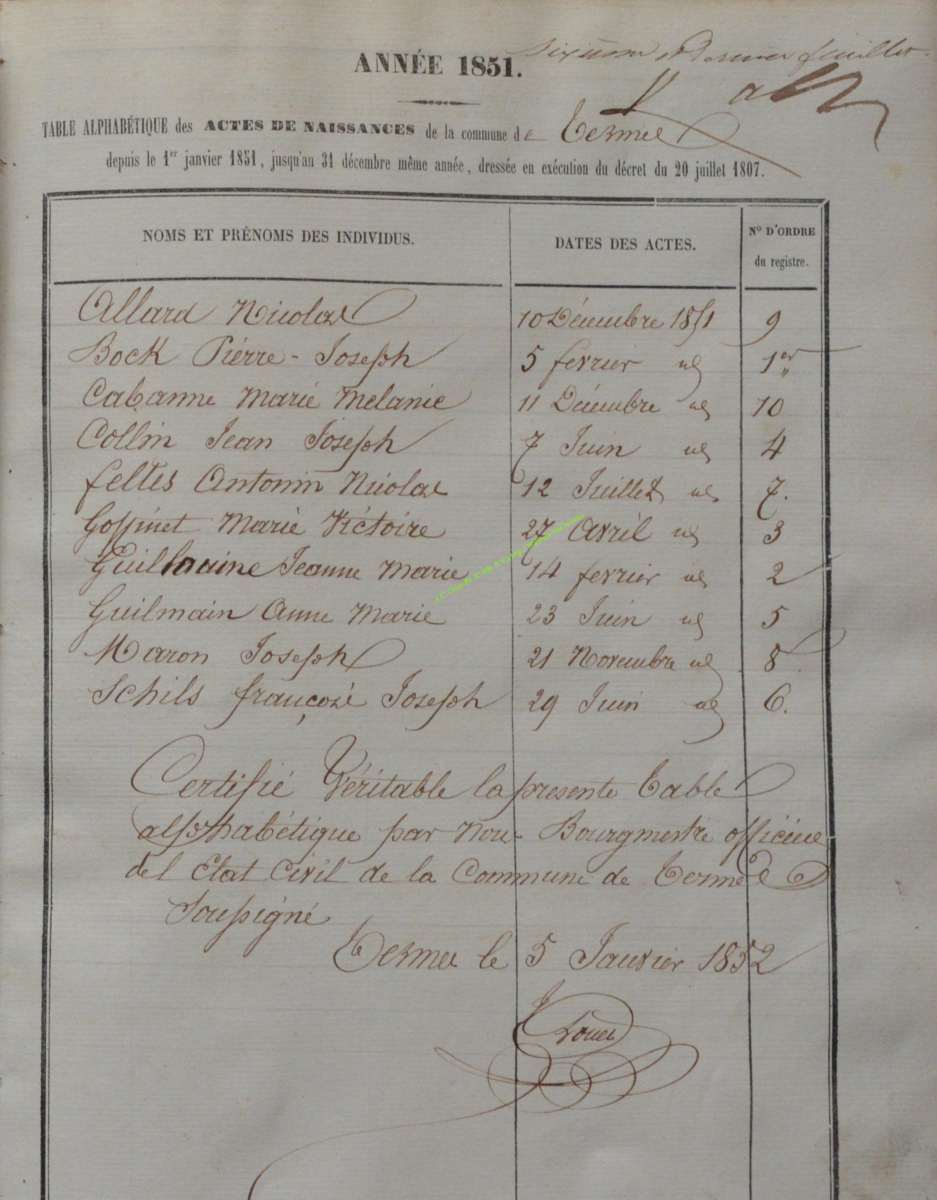 sixième et Dernier feuillet
ANNÉE 1851.
TABLE ALPHABÉTIQUE des ACTES DE NAISSANCES de la commune de Termes
depuis le 1er janvier 1851, jusqu'au 31 décembre même année, dressée en exécution du décret du 20 juillet 1807.
NOMS ET PRÉNOMS DES INDIVIDUS. DATES DES ACTES. N° D'ORDRE du registre.
Allard Nicolas 10 Décembre 1851 9
Bock Piérre-Joseph 5 fevrier id 1er
Cabanne Marie Melanie 11 Décembre id 10
Collin Jean Joseph 7 Juin id 4
feltes Antonin Nicolas 12 Juillet id 7.
Goffinet Marie Victoire 27 Avril id 3
Guillaume Jeanne Marie 14 fevrier id 2
Guilmain Anne Marie 23 Juin id 5
Maron Joseph 21 Novembre id 8
Schils françoise Joseph 29 Juin id 6.
Certifié Véritable la presente Table
alphabétique par Nous Bourgmestre officier
del Etat Civil de la Commune de Termes
Soussigné
Termes le 5 Janvier 1852